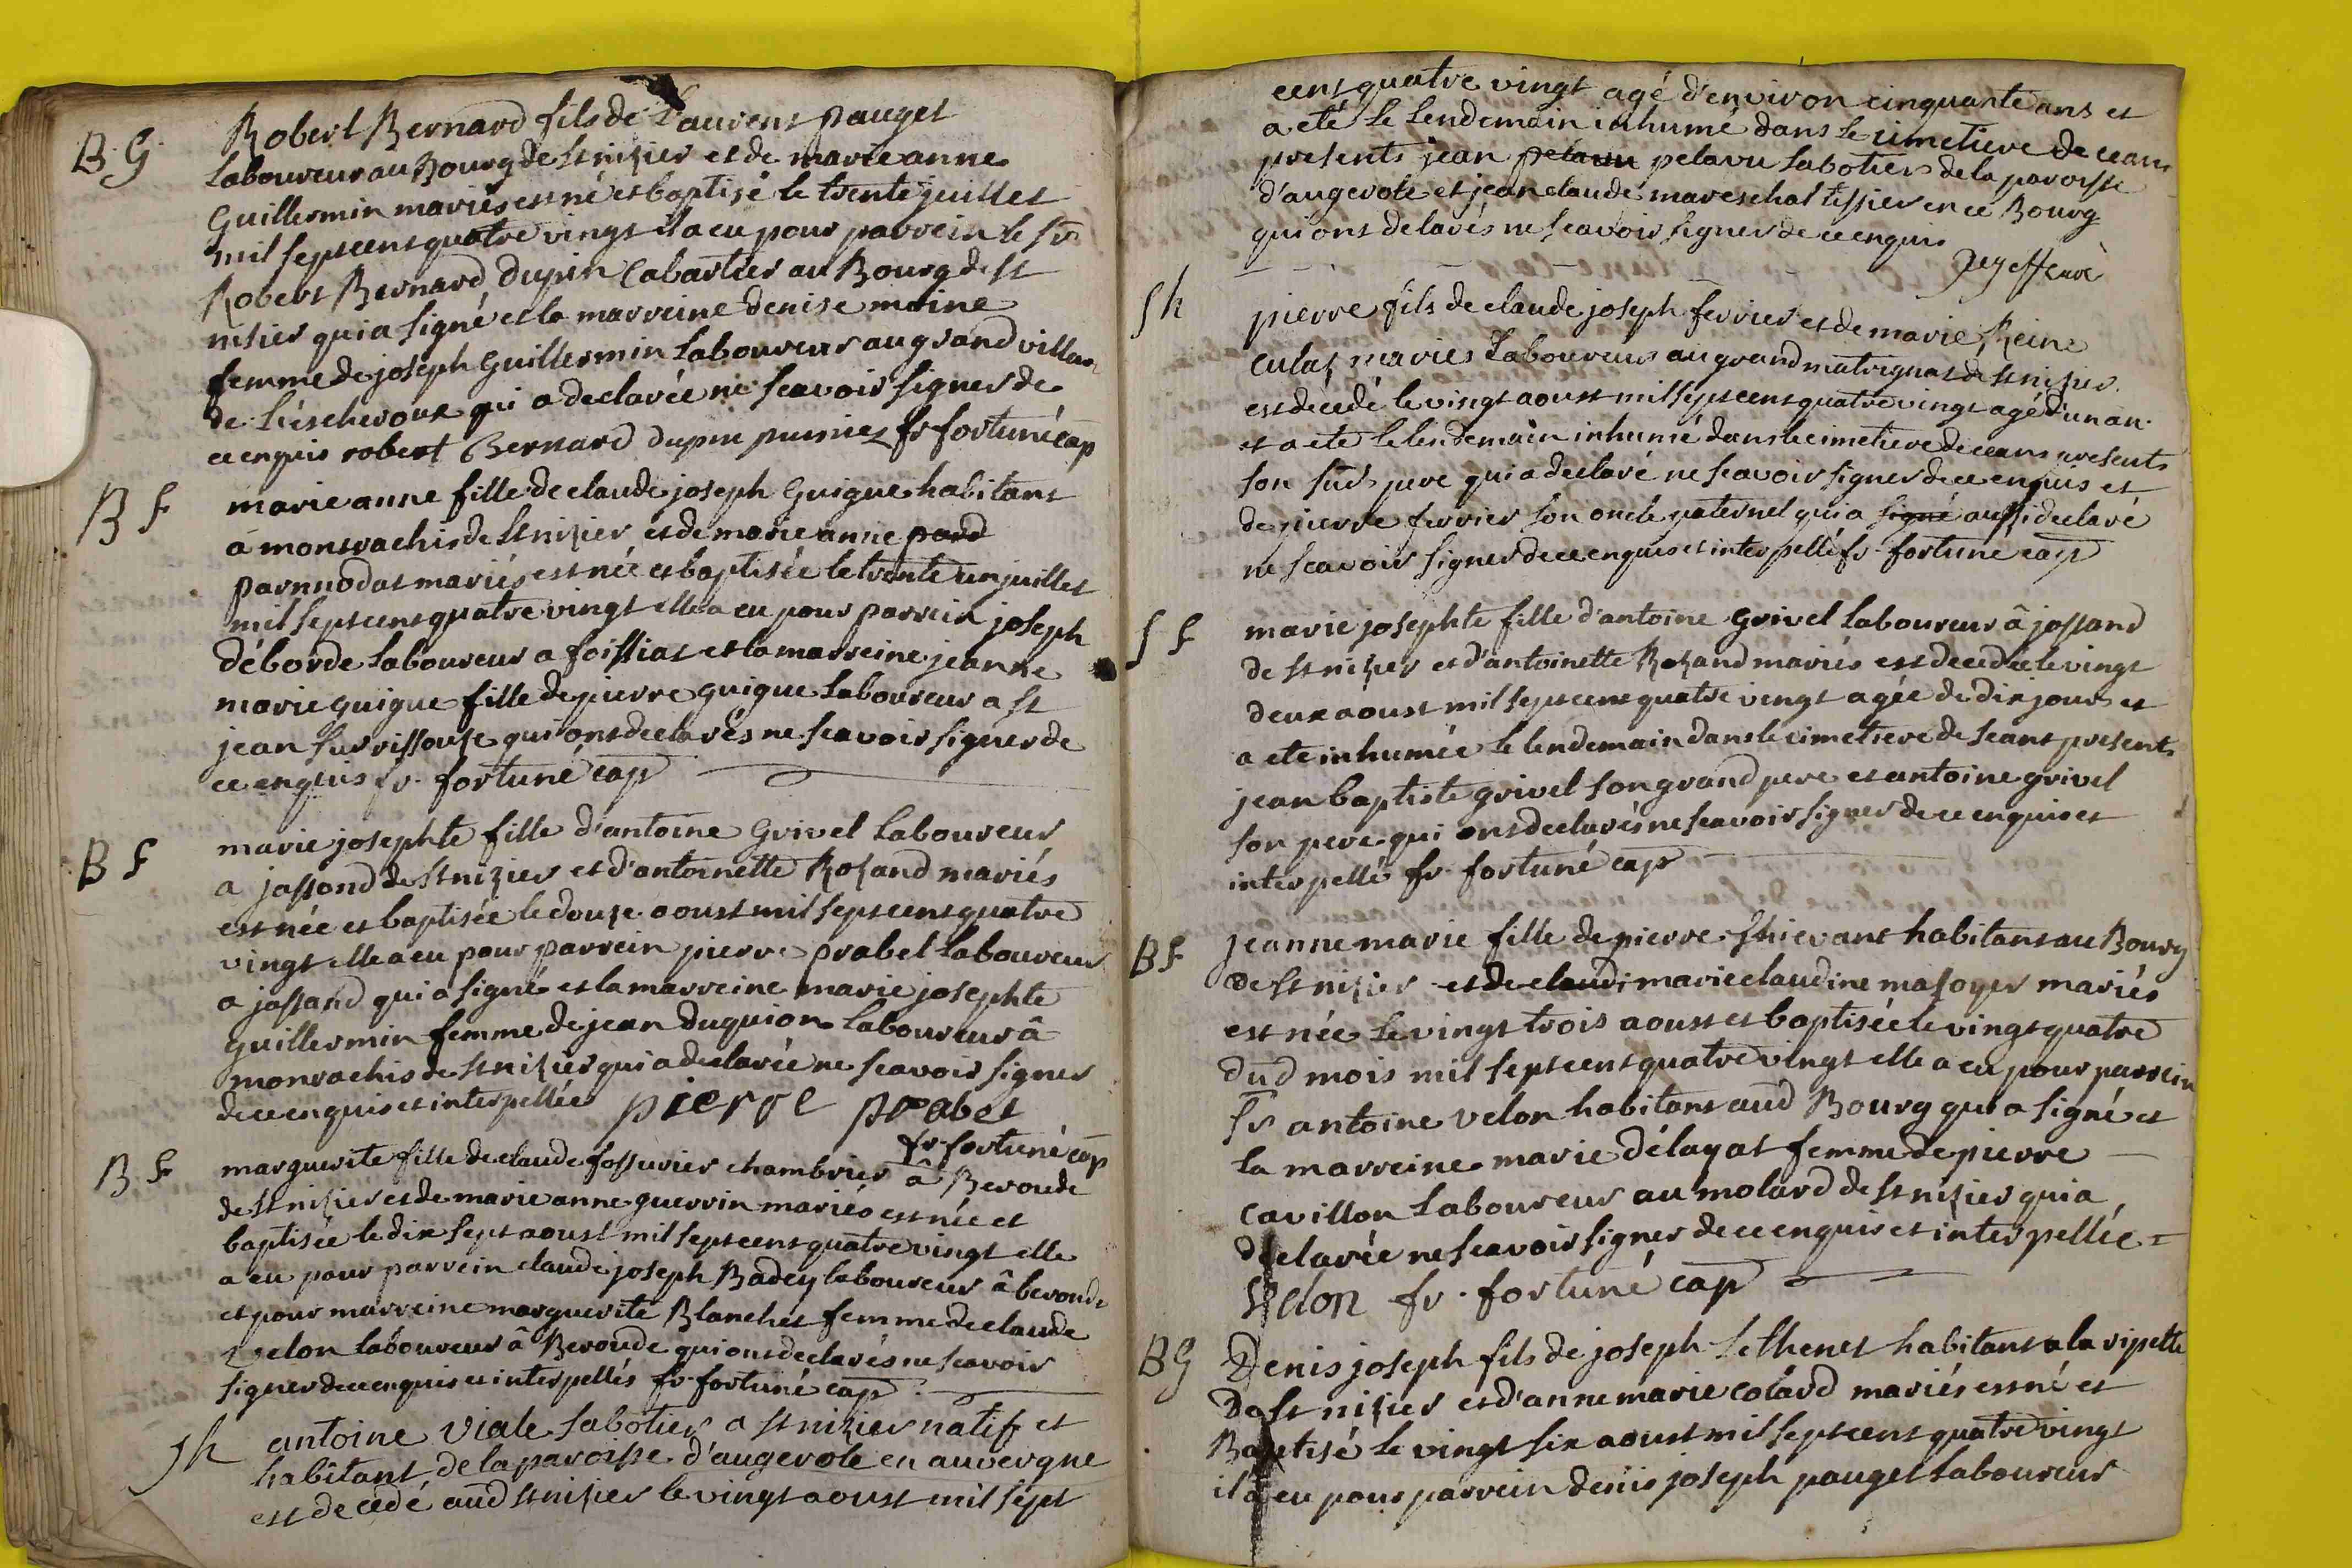 B. G. Robert Bernard fils de Laurent pauget
laboureur au Bourg de St nizier et de marie anne
Guillermin mariés est né et baptisé le trente juillet
mil sept cent quatre vingt il a eu pour parrein le sr
Robert Bernard dupin Cabartier au Bourg de st
nisier qui a signé et la marreine denise moine
femme de joseph Guillermin laboureur au grand villar
de l'éscheroux qui a declarée ne scavoir signer de
ce enquis robert Bernard dupin fr fortuné cap
B f marie anne fille de claude joseph Guigue habitant
a monrachis de St nizier et de marie anne pard
parnnodat mariés est née et baptisée le trente un juillet
mil sept cent quatre vingt elle a eu pour parrein joseph
déborde laboureur a foissiat et la marreine jeanne
marie guigue fille de pierre guigue laboureur a st
jean sur rissouze qui ont declarés ne scavoir signer de
ce enquis fr. fortuné cap
B f marie josephte fille d'antoine Grivel laboureur
a jassand de St nizier et d'antoinette Rozand mariés
est née et baptisée le douze aoust mil sept cent quatre
vingt elle a eu pour parrein pierre prabel laboureur
a jassand qui a signé et la marreine marie josephte
guillermin femme de jean duguion laboureur â
monrachis de St nizier qui a declarée ne scavoir signer
de ce enquis et interpellée pierre prabel
fr. fortuné cap
B. f marguerite fille de claude fosseurier chambrier â Beroude
de St nizier et de marie anne guerrin mariés est née et
baptisée le dix sept aoust mil sept cent quatre vingt elle
a eu pour parrein claude joseph Badey laboureur â beroude
et pour marreine marguerite Blanchet femme de claude
velon laboureur â Beroude qui ont declarés ne scavoir
signer de ce enquis et interpellés fr fortuné cap.
Sh antoine viale sabotier a St nizier natif et
habitant de la paroisse d'augerole en auvergne
est decedé aud St nizier le vingt aoust mil sept
cent quatre vingt agé d'environ cinquante ans et
a eté le lendemain inhumé dans le cimetiere de ceans
presents jean pelavu pelavu sabotier de la paroisse
d'augerole et jean claude mareschal tissier en ce Bourg
qui ont delarés ne scavoir signer de ce enquis
Sh pierre fils de claude joseph ferrier et de marie Reine
Culaz mariés Laboureurs au grand matrignat de St nizier
est decedé le vingt aoust mil sept cent quatre vingt agé d'un an
et a eté le lendemain inhumé dans le cimetiere de ceans presents
son sud pere qui a declaré ne scavoir signer de ce enquis et
de pierre ferrier son oncle paternel qui a signé aussi declaré
ne scavoir signer de ce enquis et interpellé fr. fortuné cap
S f marie josephte fille d'antoine Grivel laboureur â jassand
de St nizier et d'antoinette Rozand mariés est decedée le vingt
deux aôust mil sept cent quatre vingt agée de dix jours et
a eté inhumée le lendemain dans le cimetiere de seans presents
jean baptiste grivel son grand pere et antoine grivel
son pere qui ont declarés ne scavoir signer de ce enquis et
interpellé fr. fortuné cap
B f Jeanne marie fille de pierre Thievant habitant au Bourg
de St nizier et de claudi marie claudine masoyer mariés
est née le vingt trois aoust et baptisée le vingt quatre
dud mois mil sept cent quatre vingt elle a eu pour parrein
sr antoine velon habitant aud Bourg qui a signé et
la marreine marie délayat femme de pierre
Cavillon laboureur au molard de St nizier qui a
declarée ne scavoir signer de ce enquis et interpellée =
Velon fr. fortuné cap
B G Denis joseph fils de joseph Sethenet habitant a la ripette
De St nizier et d'anne marie colard mariés est né et
Baptisé le vingt six aoust mil sept cent quatre vingt
il a eu pour parrein denis joseph pauget laboureur